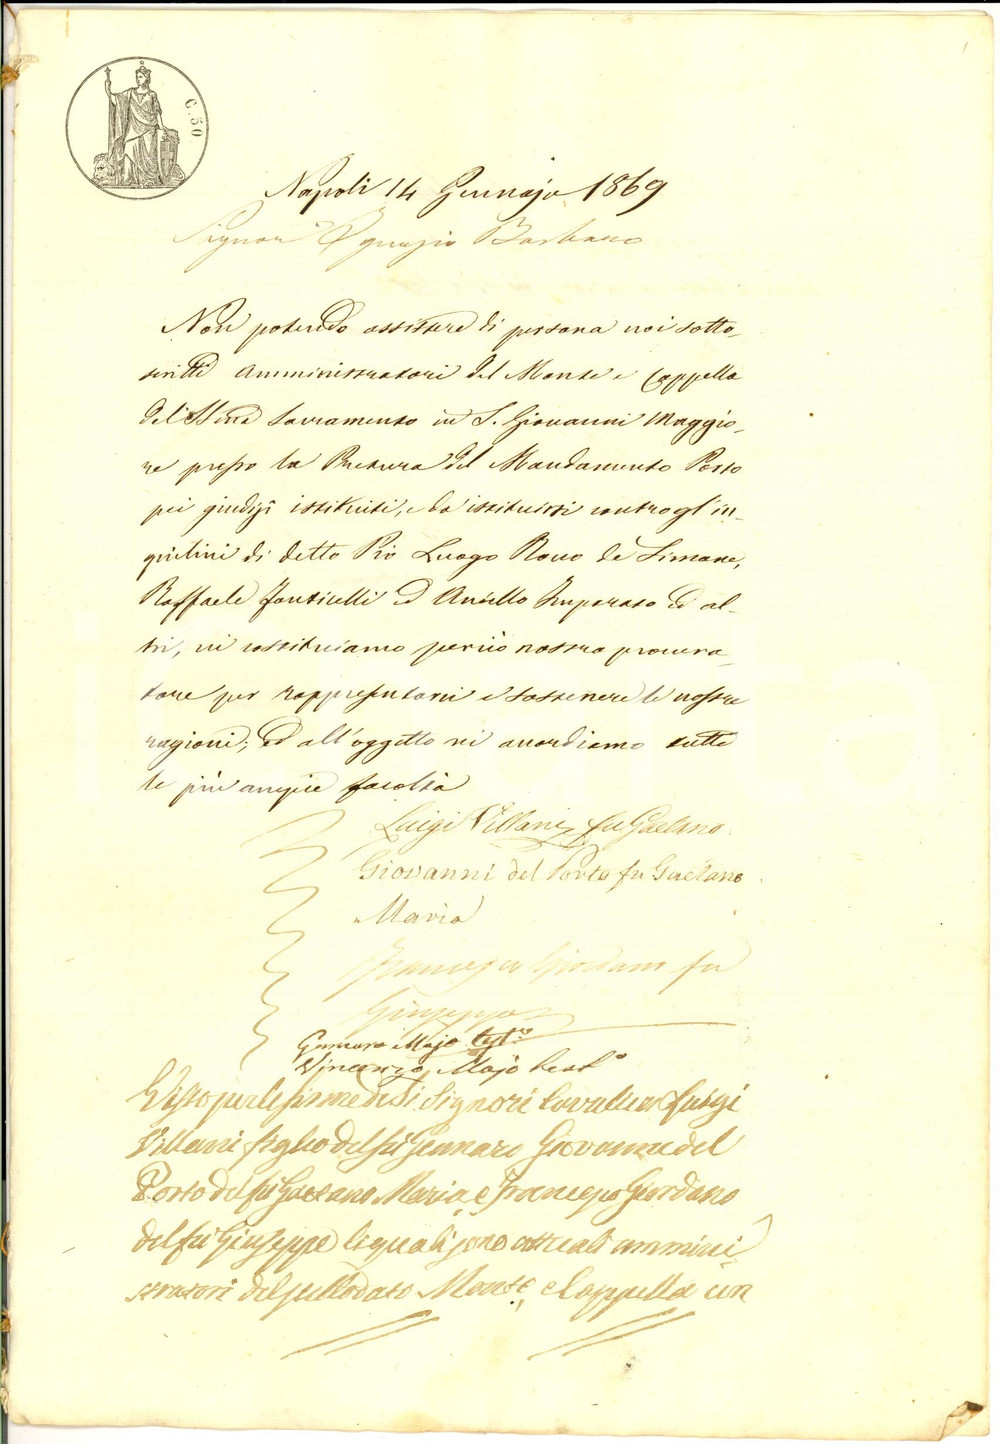 C. 50
Napoli 14 Gennajo 1869
Signor Ignazio Barbano
Non potendo assistere di persona noi sotto-
scritti Amministratori del Monte e Cappella
del SSmo Sacramento in S. Giovanni Maggio-
re presso la Pretura del Mandamento Porto
pei giudizî istituiti, e da istituirsi contro gl'in-
quilini di detto Pio Luogo Rocco de Simone,
Raffaele Fonticelli ed Aniello Imparato ed al-
tri, vi costituiamo perciò nostro procura-
tore per rappresentarci e sostenere le nostre
ragioni; ed all'oggetto vi accordiamo tutte
le più ampie facoltà
Luigi Villani fu Gaetano
Giovanni del Porto fu Gaetano
Maria
Francesco Giordano fu
Giuseppe
Gennaro Majo testo
Vincenzo Majo testo
Visto per le firme di Signori Cavalier Luigi
Villani figlio del fu Gennaro Giovanni del
Porto del fu Gaetano Maria, e Francesco Giordano
del fu Giuseppe li quali sono attuali ammini-
stratori del sullodato Monte, e Cappella con